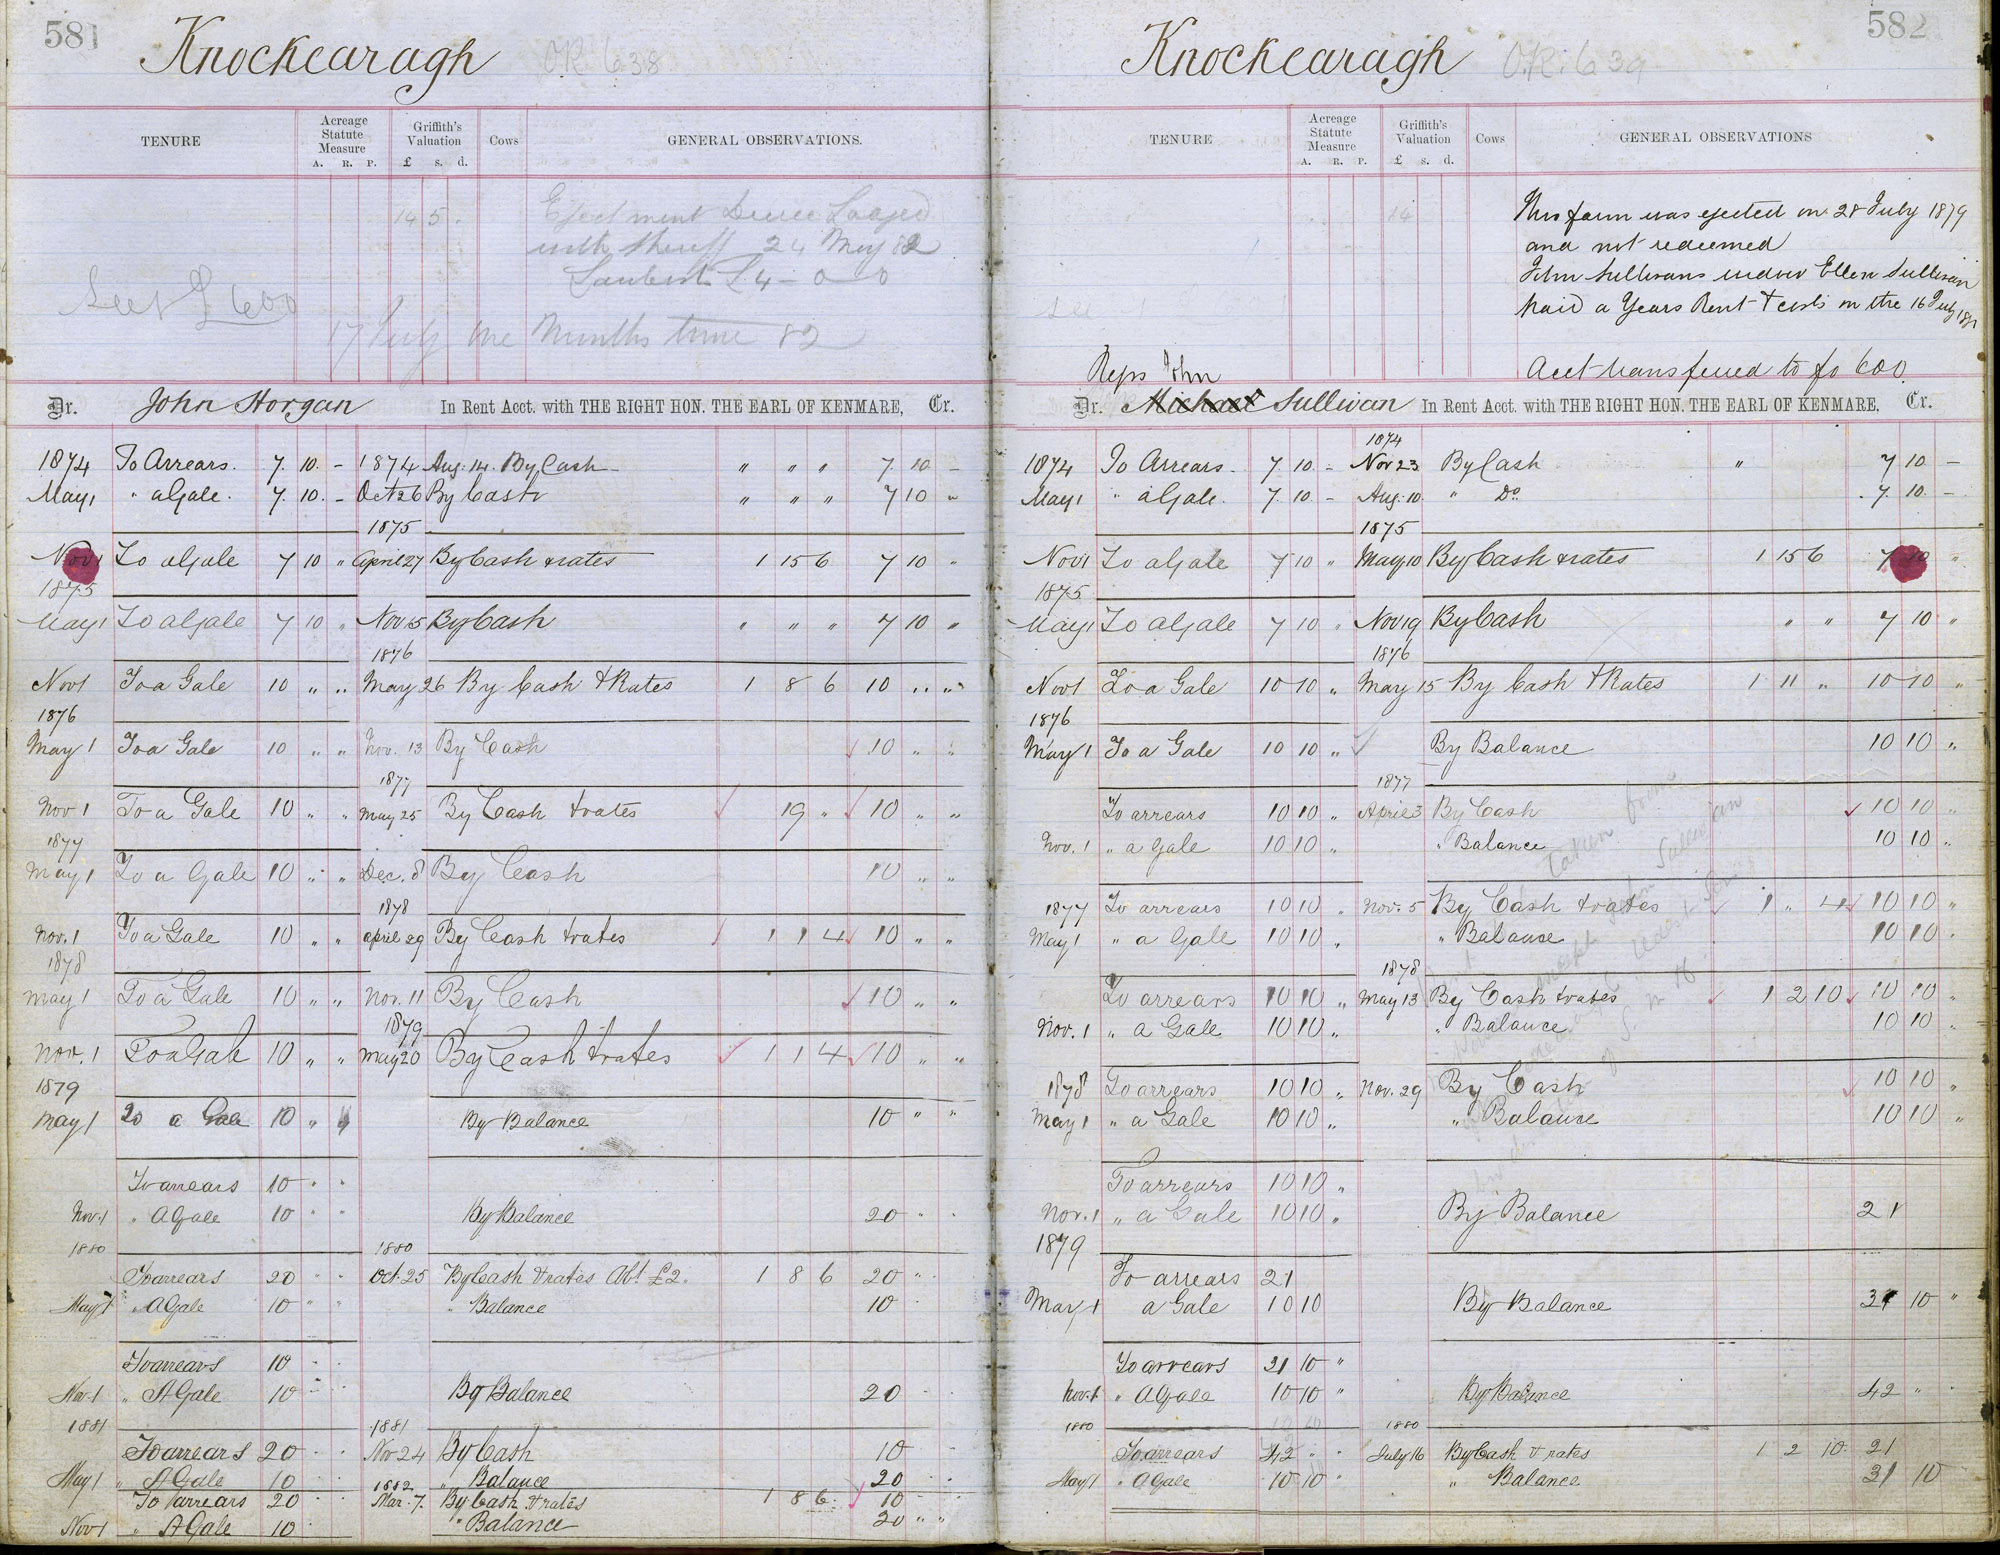 581
Knockearagh OR. 638
TENURE
Acreage Statute Measure
A. R. P.
Griffith's Valuation
£ s. d.
Cows
GENERAL OBSERVATIONS.
14 5 Ejectment Decree Lodged
with Sheriff 24 May 82
£4-0-0
£600
17 July one Months time 82
Dr. John Horgan In Rent Acct. with THE RIGHT HON. THE EARL OF KENMARE, Cr.
1874 To Arrears. 7. 10. - 1874 Aug. 14. By Cash - " " " 7 10 -
May 1 " a Gale. 7. 10. - Oct 26 By Cash " " " 7 10 "
1875
Nov 1 To a Gale 7 10 " April 27 By Cash & rates 1 15 6 7 10 "
1875
May 1 To a Gale 7 10 " Nov 15 By Cash " " " 7 10 "
1876
Nov 1 To a Gale 10 " " May 26 By Cash & Rates 1 8 6 10 " "
1876
May 1 To a Gale 10 " " Nov. 13 By Cash 10 " "
1877
Nov 1 To a Gale 10 " " May 25 By Cash & rates 19 " 10 " "
1877
May 1 To a Gale 10 " " Dec. 8 By Cash 10 " "
1878
Nov. 1 To a Gale 10 " " April 29 By Cash & rates 1 1 4 10 " "
1878
May 1 To a Gale 10 " " Nov. 11 By Cash 10 " "
1879
Nov. 1 To a Gale 10 " " May 20 By Cash & rates 1 1 4 10 " "
1879
May 1 To a Gale 10 " " By Balance 10 " "
To arrears 10 " "
Nov. 1 " A Gale 10 " " By Balance 20 " "
1880 1880
To arrears 20 " " Oct. 25 By Cash & rates Abt £2. 1 8 6 20 " "
May 1 " A Gale 10 " " " Balance 10 "
To arrears 10 " "
Nov. 1 " A Gale 10 " " By Balance 20 " "
1881 1881
To arrears 20 " " Nov 24 By Cash 10 "
May 1 " A Gale 10 " " " Balance 20 " "
1882
To arrears 20 " " Mar. 7. By Cash & rates 1 8 6 10 "
Nov 1 " A Gale 10 " " Balance 20 " "
582
Knockearagh O.R. 639
TENURE
Acreage Statute Measure
A. R. P.
Griffith's Valuation
£ s. d.
Cows
GENERAL OBSERVATIONS
14
This farm was ejected on 28 July 1879
and not redeemed
John Sullivans widow Ellen Sullivan
paid a Years Rent & costs on the 16 July
Acct transferred to fo 600
Reps John
Dr. Michael Sullivan In Rent Acct. with THE RIGHT HON. THE EARL OF KENMARE, Cr.
1874
1874 To Arrears - 7 10 - Nov 23 By Cash " 7 10 -
May 1 " a Gale. 7. 10 - Aug. 10. " Do 7 10 -
1875
Nov 1 To a Gale 7 10 " May 10 By Cash & rates 1 15 6 7 10 "
1875
May 1 To a Gale 7 10 " Nov 19 By Cash " " 7 10 "
1876
Nov 1 To a Gale 10 10 " May 15 By Cash & Rates 1 11 " 10 10 "
1876
May 1 To a Gale 10 10 " By Balance 10 10 "
1877
To arrears 10 10 " April 3 By Cash 10 10 "
Nov. 1 " a Gale 10 10 " " Balance 10 10 "
1877 To arrears 10 10 " Nov. 5 By Cash & rates 1 " 4 10 10 "
May 1 " a Gale 10 10 " " Balance 10 10 "
1878
To arrears 10 10 " May 13 By Cash & rates 1 2 10 10 10 "
Nov. 1 " a Gale 10 10 " " Balance 10 10 "
1878 To arrears 10 10 " Nov. 29 By Cash 10 10 "
May 1 " a Gale 10 10 " " Balance 10 10 "
To arrears 10 10 "
Nov. 1 " a Gale 10 10 " By Balance 21
1879
To arrears 21
May 1 a Gale 10 10 By Balance 31 10 "
To arrears 21 10 "
Nov. 1 " A Gale 10 10 " By Balance 42 " "
1880 1880
To arrears 42 " " July 16 By Cash & rates 1 2 10. 21
May 1 " A Gale 10 10 " " Balance 31 10
taken from
John Sullivan